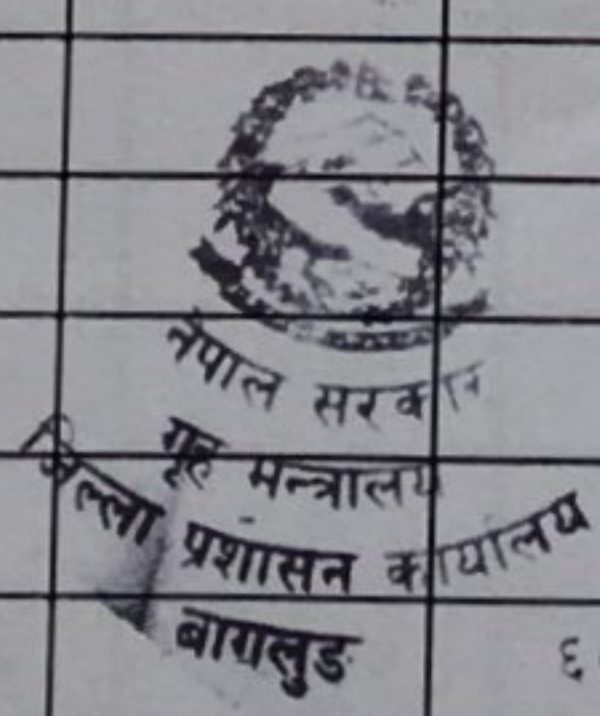 नेपाल सरकार
गृह मन्त्रालय
जिल्ला प्रशासन कार्यालय
बागलुङ
६